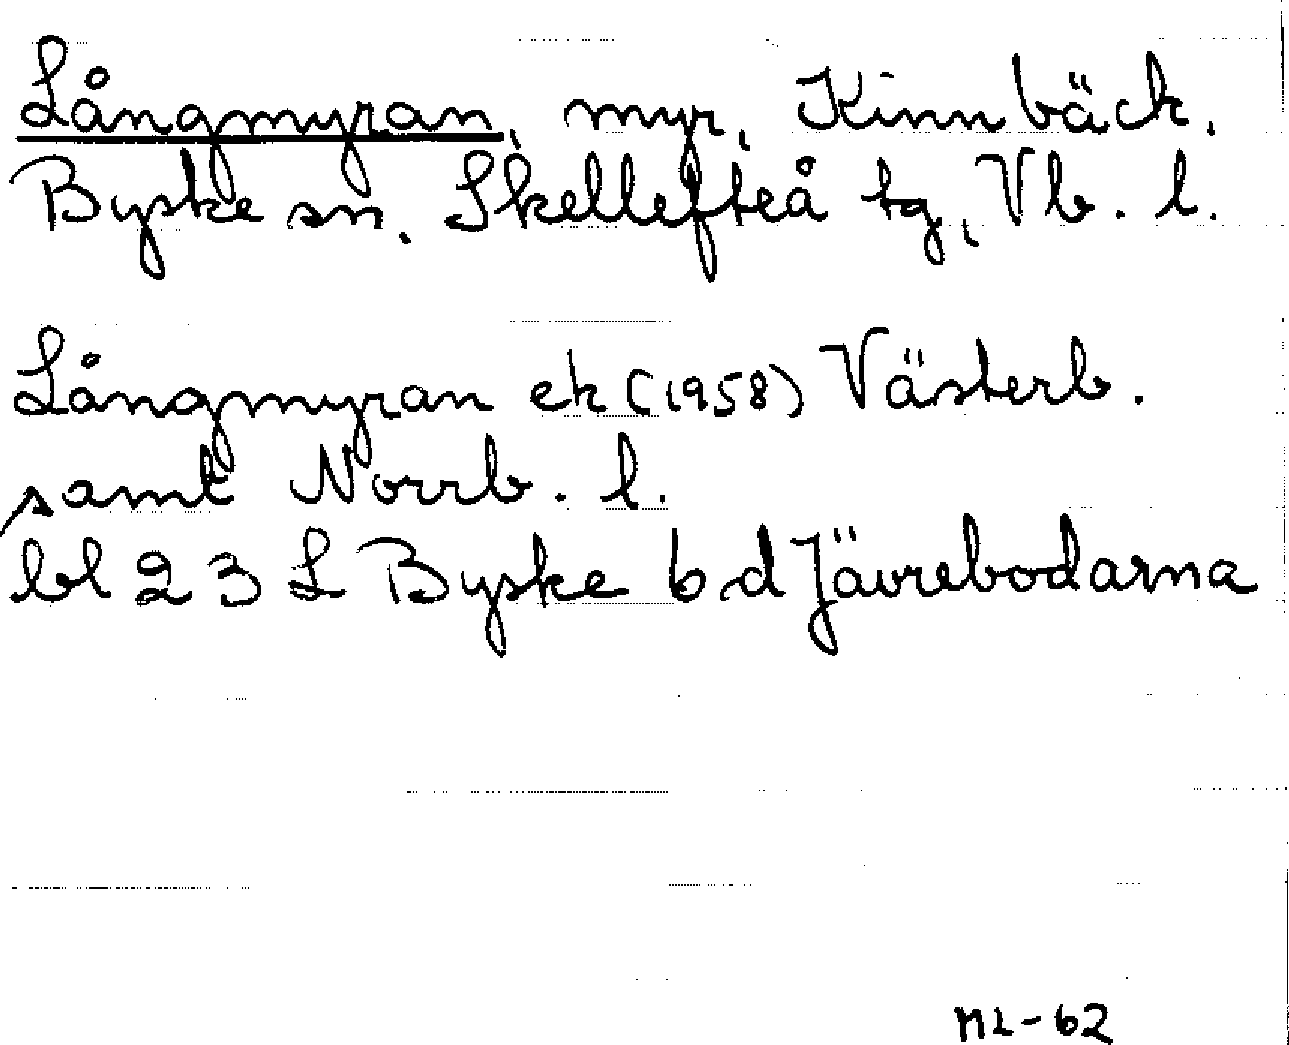 Långmyran, myr, Kinnbäck,
Byske sn. Skellefteå tg, Vb. l.
Långmyran ek (1958) Västerb.
samt Norrb. l.
bl 23 L Byske b d Jävrebodarna
NL-62